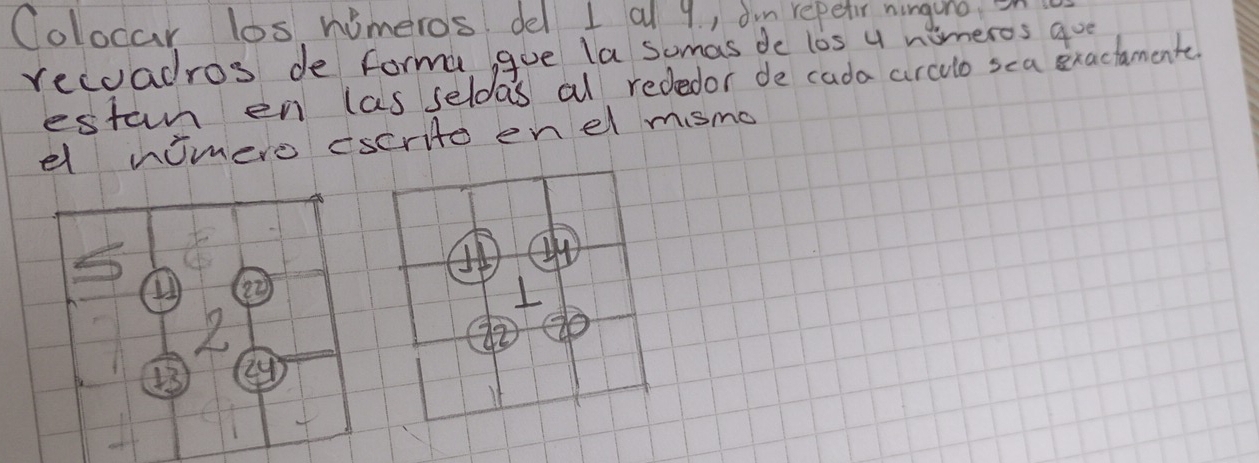 Colocar los números del 1 al 9, sin repetir ninguno, en los
recuadros de forma que la sumas de los 4 números que
estan en las seldas al rededor de cada circulo sea exactamente
el número escrito en el mismo
5
11 22
2
13 24
11 14
1
22 20